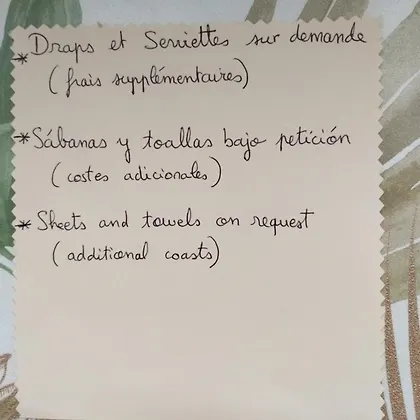 * Draps et Serviettes sur demande
( frais supplémentaires)
* Sábanas y toallas bajo petición
( costes adicionales)
* Sheets and towels on request
( additional coasts)